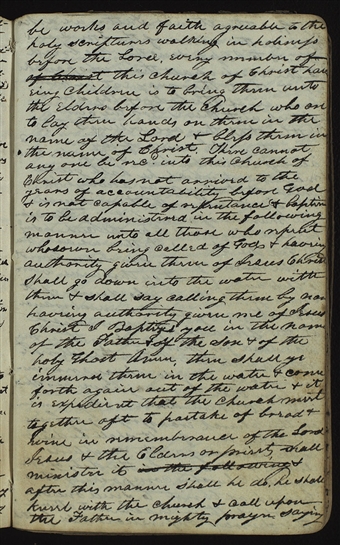 be works and faith agreeable to the
holy scriptures walking in holiness
before the Lord, every member of
of Christ this church of Christ hav
eing children is to bring them unto
the Elders before the Church who are
to lay their hands on them in the
name of the Lord & bless them in
the name of Christ, there cannot
any one be rec into this Church of
Christ who has not arrived to the
years of accountability before God
& is not capable of repentance & baptism
is to be administered in the following
manner unto all those who repent
whosown being called of God & having
authority given them of Jesus Christ
shall go down into the water with
them & shall say calling them by nam
having authority given me of Jesus
Christ I Baptize you in the name
of the Father & of the son & of the
holy Ghost Amen, then shall ye
immerse them in the water & come
forth again out of the water & it
is expedient that the church meet
together oft to partake of bread &
wine in rememberance of the Lord
Jesus & the Elders or priest, shall
minister it in the following &
after this manner shall he do, he shall
kneel with the church & call upon
the Father in mighty prayer saying